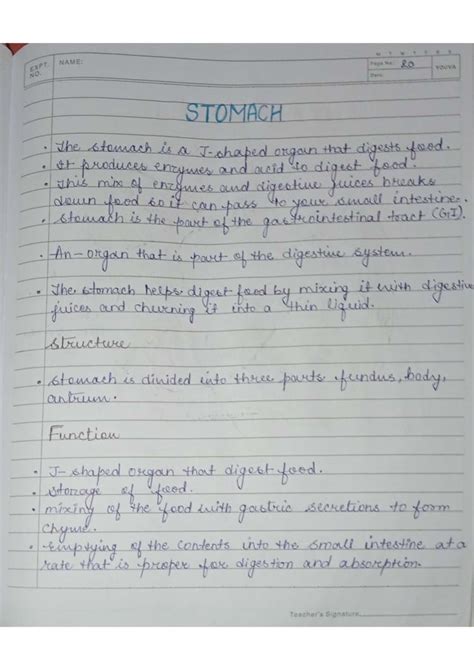 M T W T F S S
EXPT. NO.
NAME:
Page No.: 20
YOUVA
Date:
STOMACH
• The stomach is a J-shaped organ that digests food.
• It produces enzymes and acid to digest food.
• This mix of enzymes and digestive juices breaks
down food so it can pass to your small intestine.
• Stomach is the part of the gastrointestinal tract (GI).
• An-organ that is part of the digestive system.
• The stomach helps digest food by mixing it with digestive
juices and churning it into a thin liquid.
Structure
• Stomach is divided into three parts fundus, body,
antrum.
Function
• J-shaped organ that digest food.
• storage of food.
• mixing of the food with gastric secretions to form
chyme.
• Emptying of the contents into the small intestine at a
rate that is proper for digestion and absorption.
Teacher's Signature